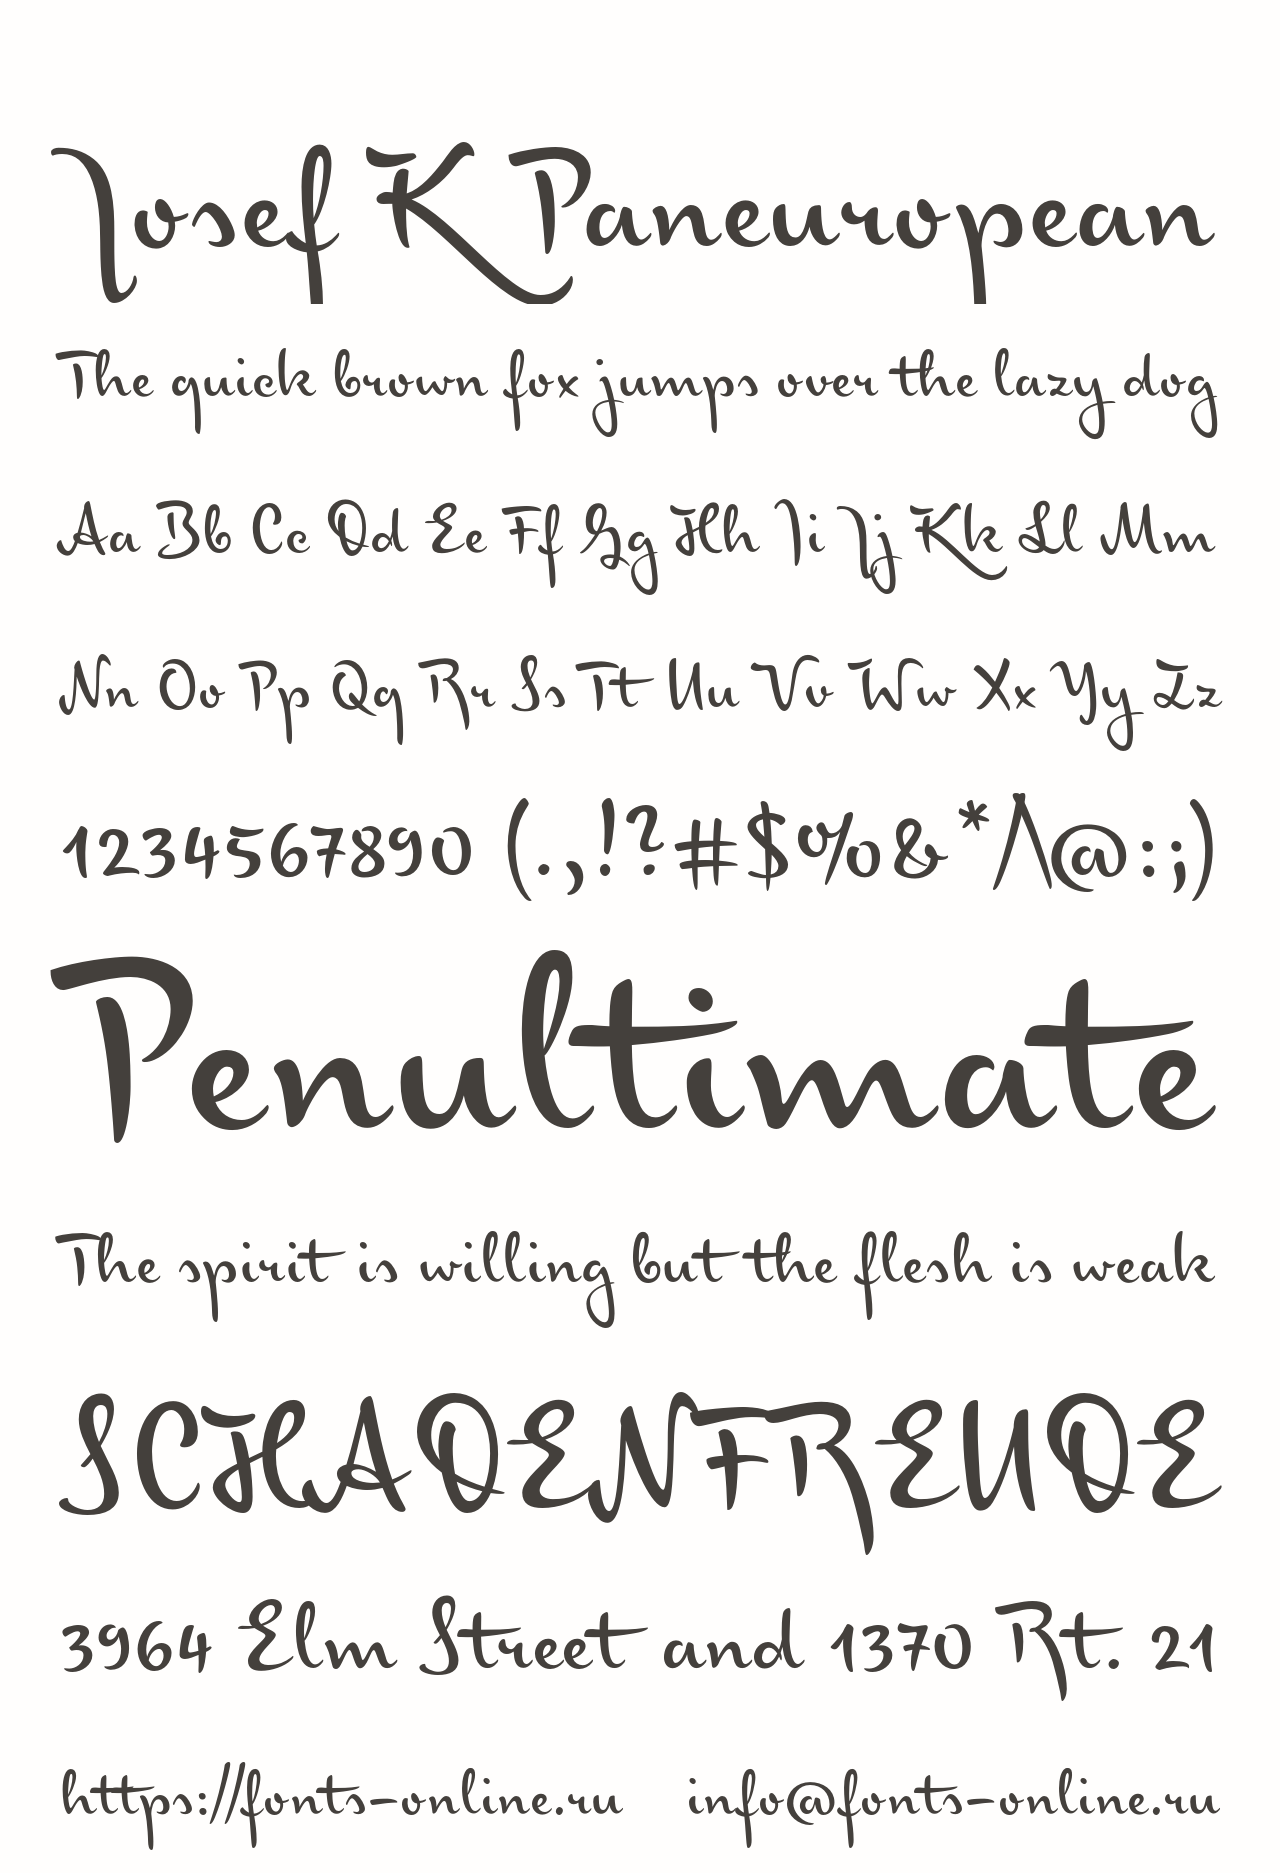 Josef K Paneuropean
The quick brown fox jumps over the lazy dog
Aa Bb Cc Dd Ee Ff Gg Hh Ii Jj Kk Ll Mm
Nn Oo Pp Qq Rr Ss Tt Uu Vv Ww Xx Yy Zz
1234567890 (.,!?#$%&*/\@:;)
Penultimate
The spirit is willing but the flesh is weak
SCHADENFREUDE
3964 Elm Street and 1370 Rt. 21
https://fonts-online.ru info@fonts-online.ru